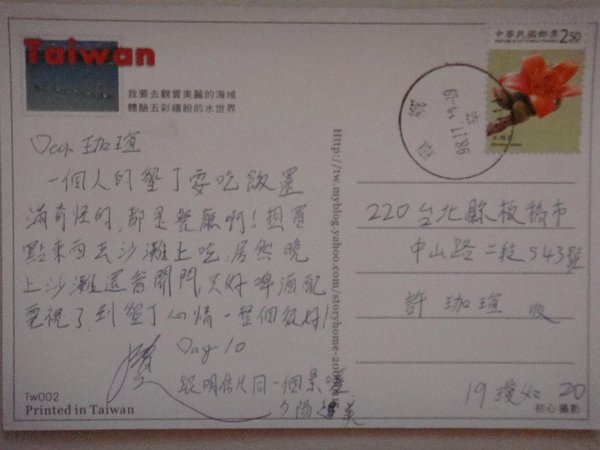 Taiwan
我要去觀賞美麗的海域
體驗五彩繽紛的水世界
中華民國郵票 2.50
REPUBLIC OF CHINA
98.11.
Dear 珈瑄
一個人的墾丁要吃飯還
滿奇怪的,都是餐廳啊!想買
點東西去沙灘上吃,居然晚
上沙灘還會關門,只好啤酒配
電視了,到墾丁心情一整個很好!
Day 10
跟明信片同一個景喔
夕陽 美
Http://tw.myblog.yahoo.com/storyhome-20
220 台北縣板橋市
中山路二段543號
許珈瑄 收
Tw002
Printed in Taiwan
初心攝影